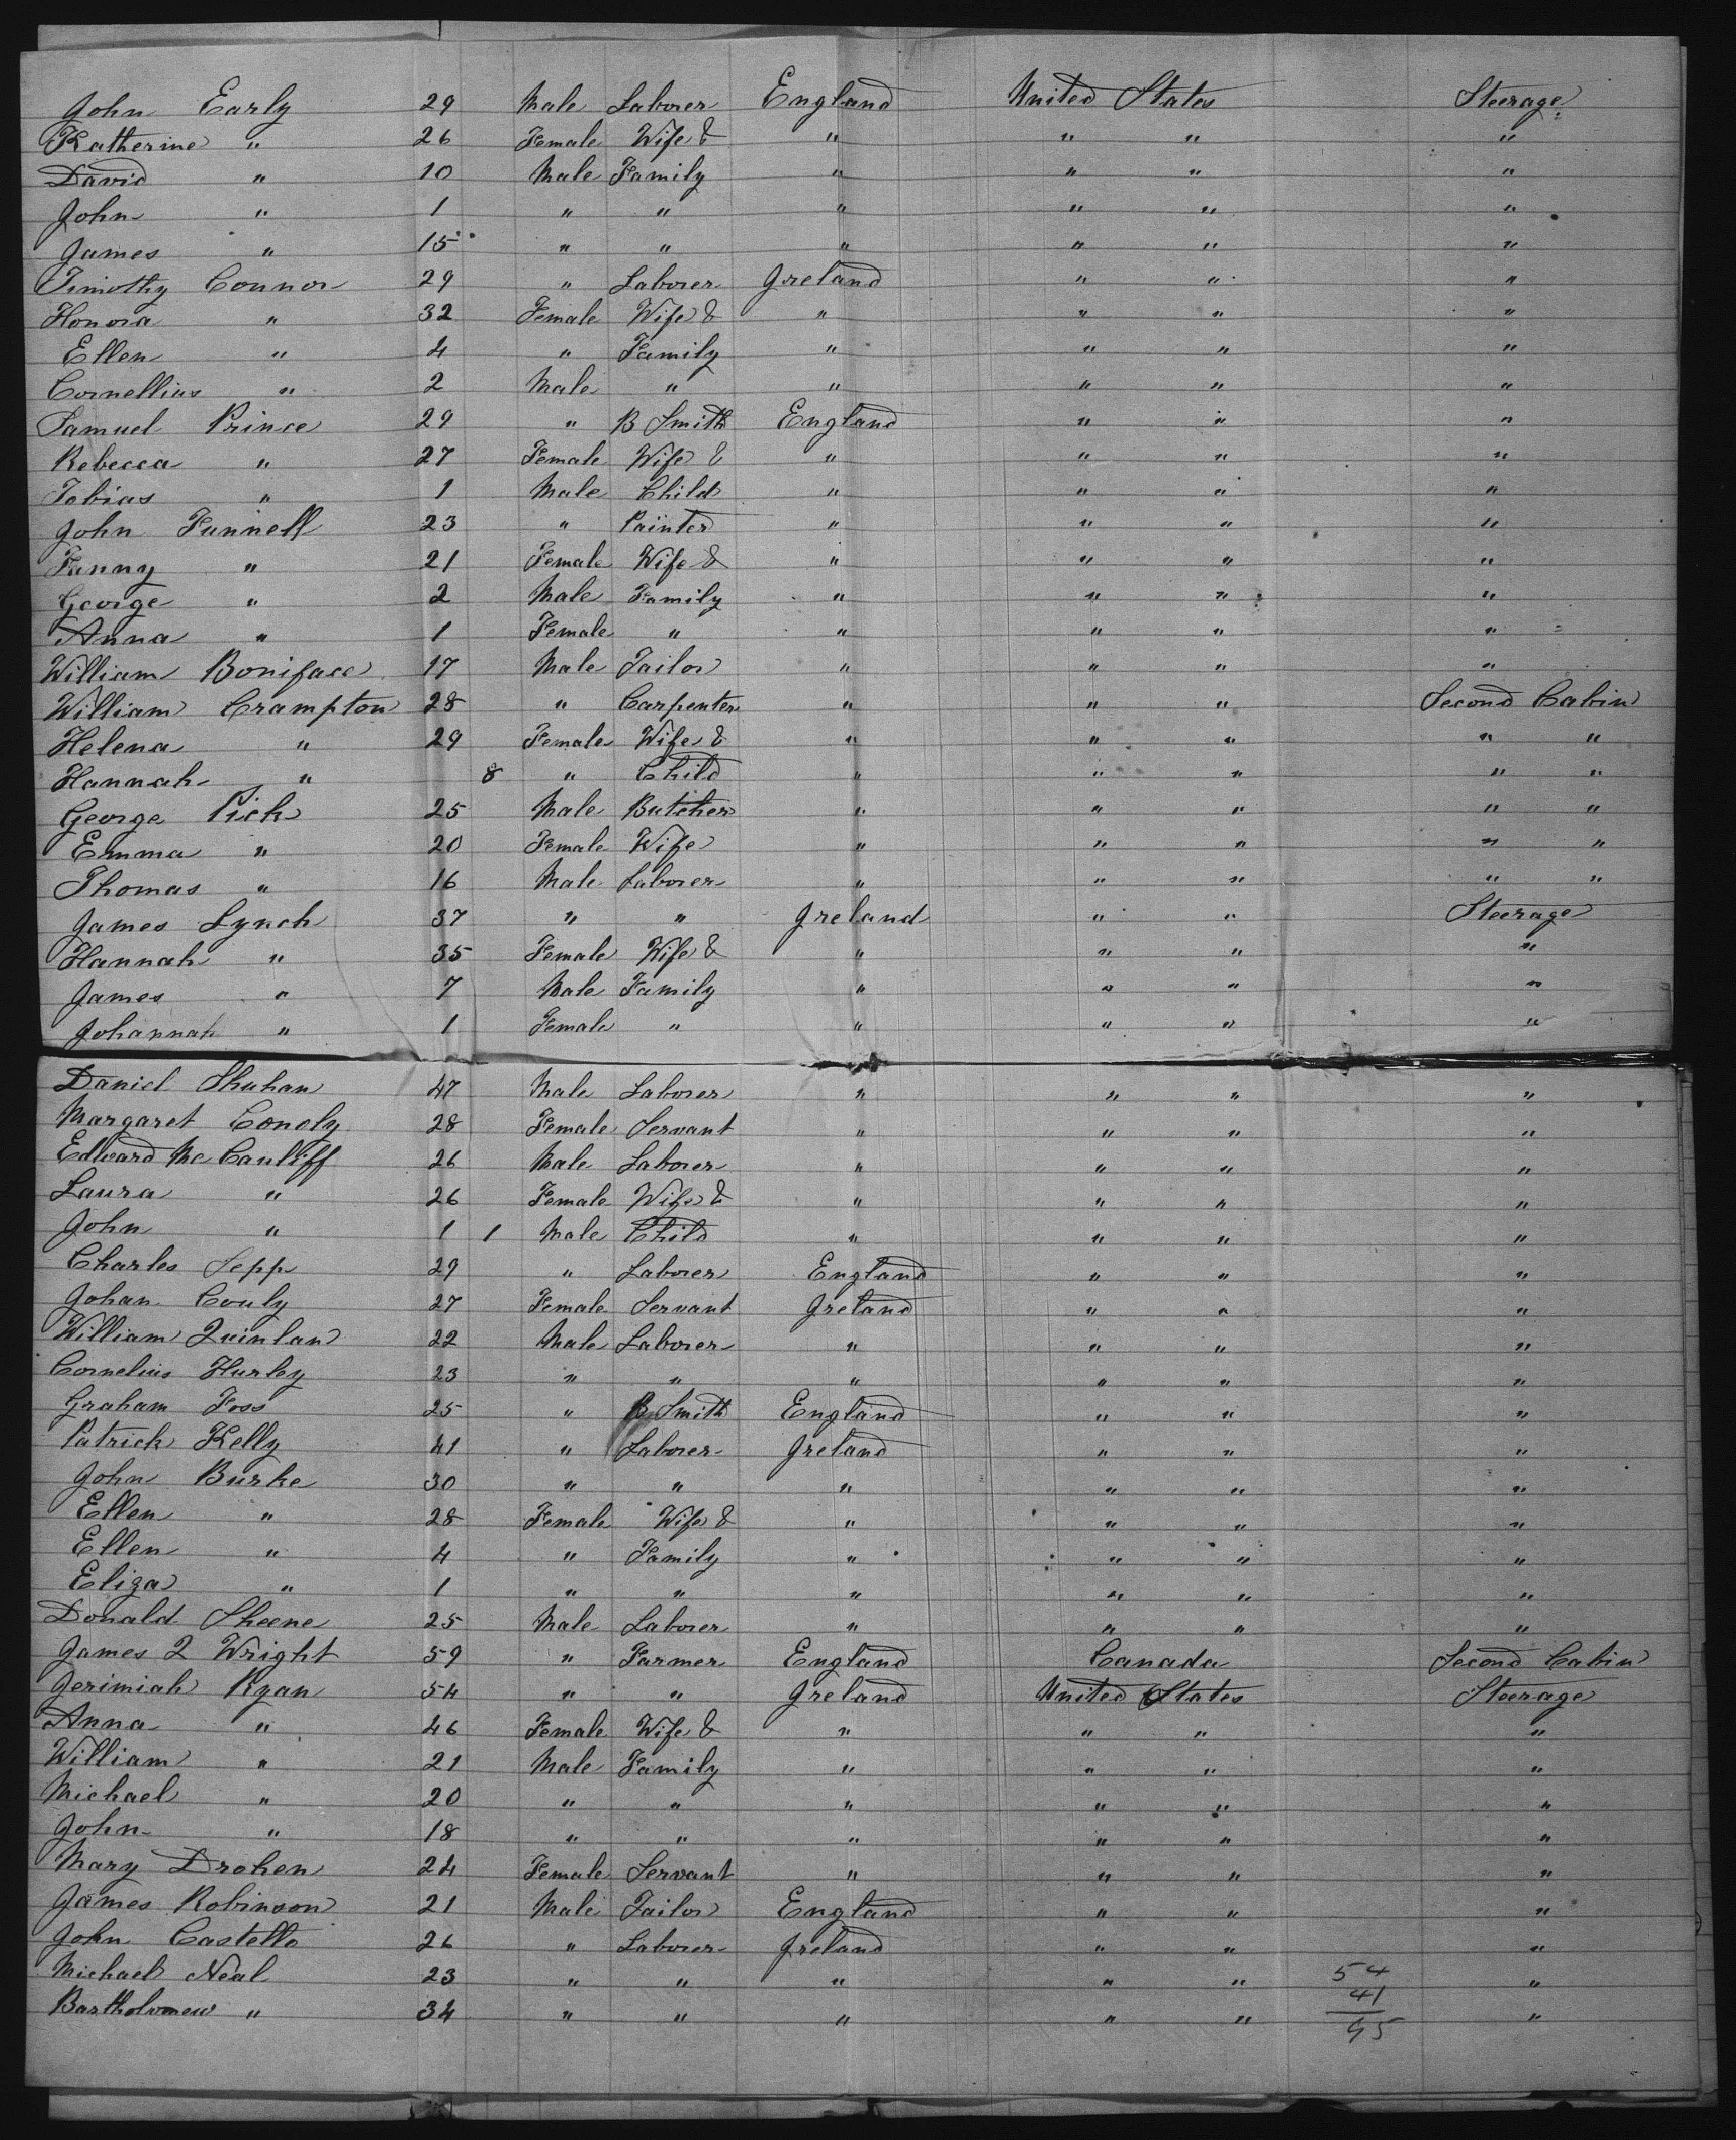 John Early 29 Male Laborer England United States Steerage
Katherine " 26 Female Wife & " " " "
David " 10 Male Family " " " "
John " 1 " " " " " "
James " 15 " " " " " "
Timothy Connor 29 " Laborer Ireland " " "
Honora " 32 Female Wife & " " " "
Ellen " 4 " Family " " " "
Cornellius " 2 Male " " " " "
Samuel Prince 29 " B Smith England " " "
Rebecca " 27 Female Wife & " " " "
Tobias " 1 Male Child " " " "
John Funnell 23 " Painter " " " "
Fanny " 21 Female Wife & " " " "
George " 2 Male Family " " " "
Anna " 1 Female " " " " "
William Boniface 17 Male Tailor " " " "
William Crampton 28 " Carpenter " " " Second Cabin
Helena " 29 Female Wife & " " " " "
Hannah " 8 " Child " " " " "
George Pich 25 Male Butcher " " " " "
Emma " 20 Female Wife " " " " "
Thomas " 16 Male Laborer " " " " "
James Lynch 37 " " Ireland " " Steerage
Hannah " 35 Female Wife & " " " "
James " 7 Male Family " " " "
Johannah " 1 Female " " " " "
Daniel Shuhan 47 Male Laborer " " " "
Margaret Conoly 28 Female Servant " " " "
Edward McCauliff 26 Male Laborer " " " "
Laura " 26 Female Wife & " " " "
John " 1 1 Male Child " " " "
Charles Sepp 29 " Laborer England " " "
Johan Couly 27 Female Servant Ireland " " "
William Quinlan 22 Male Laborer " " " "
Cornelius Hurley 23 " " " " " "
Graham Foss 25 " B Smith England " " "
Patrick Kelly 41 " Laborer Ireland " " "
John Burke 30 " " " " " "
Ellen " 28 Female Wife & " " " "
Ellen " 4 " Family " " " "
Eliza " 1 " " " " " "
Donald Sheene 25 Male Laborer " " " "
James Q Wright 59 " Farmer England Canada Second Cabin
Jerimiah Ryan 54 " " Ireland United States Steerage
Anna " 46 Female Wife & " " " "
William " 21 Male Family " " " "
Michael " 20 " " " " " "
John " 18 " " " " " "
Mary Drohen 24 Female Servant " " " "
James Robinson 21 Male Tailor England " " "
John Castello 26 " Laborer Ireland " " "
Michael Neal 23 " " " " " 54 "
41
Bartholomew " 34 " " " " " 95 "